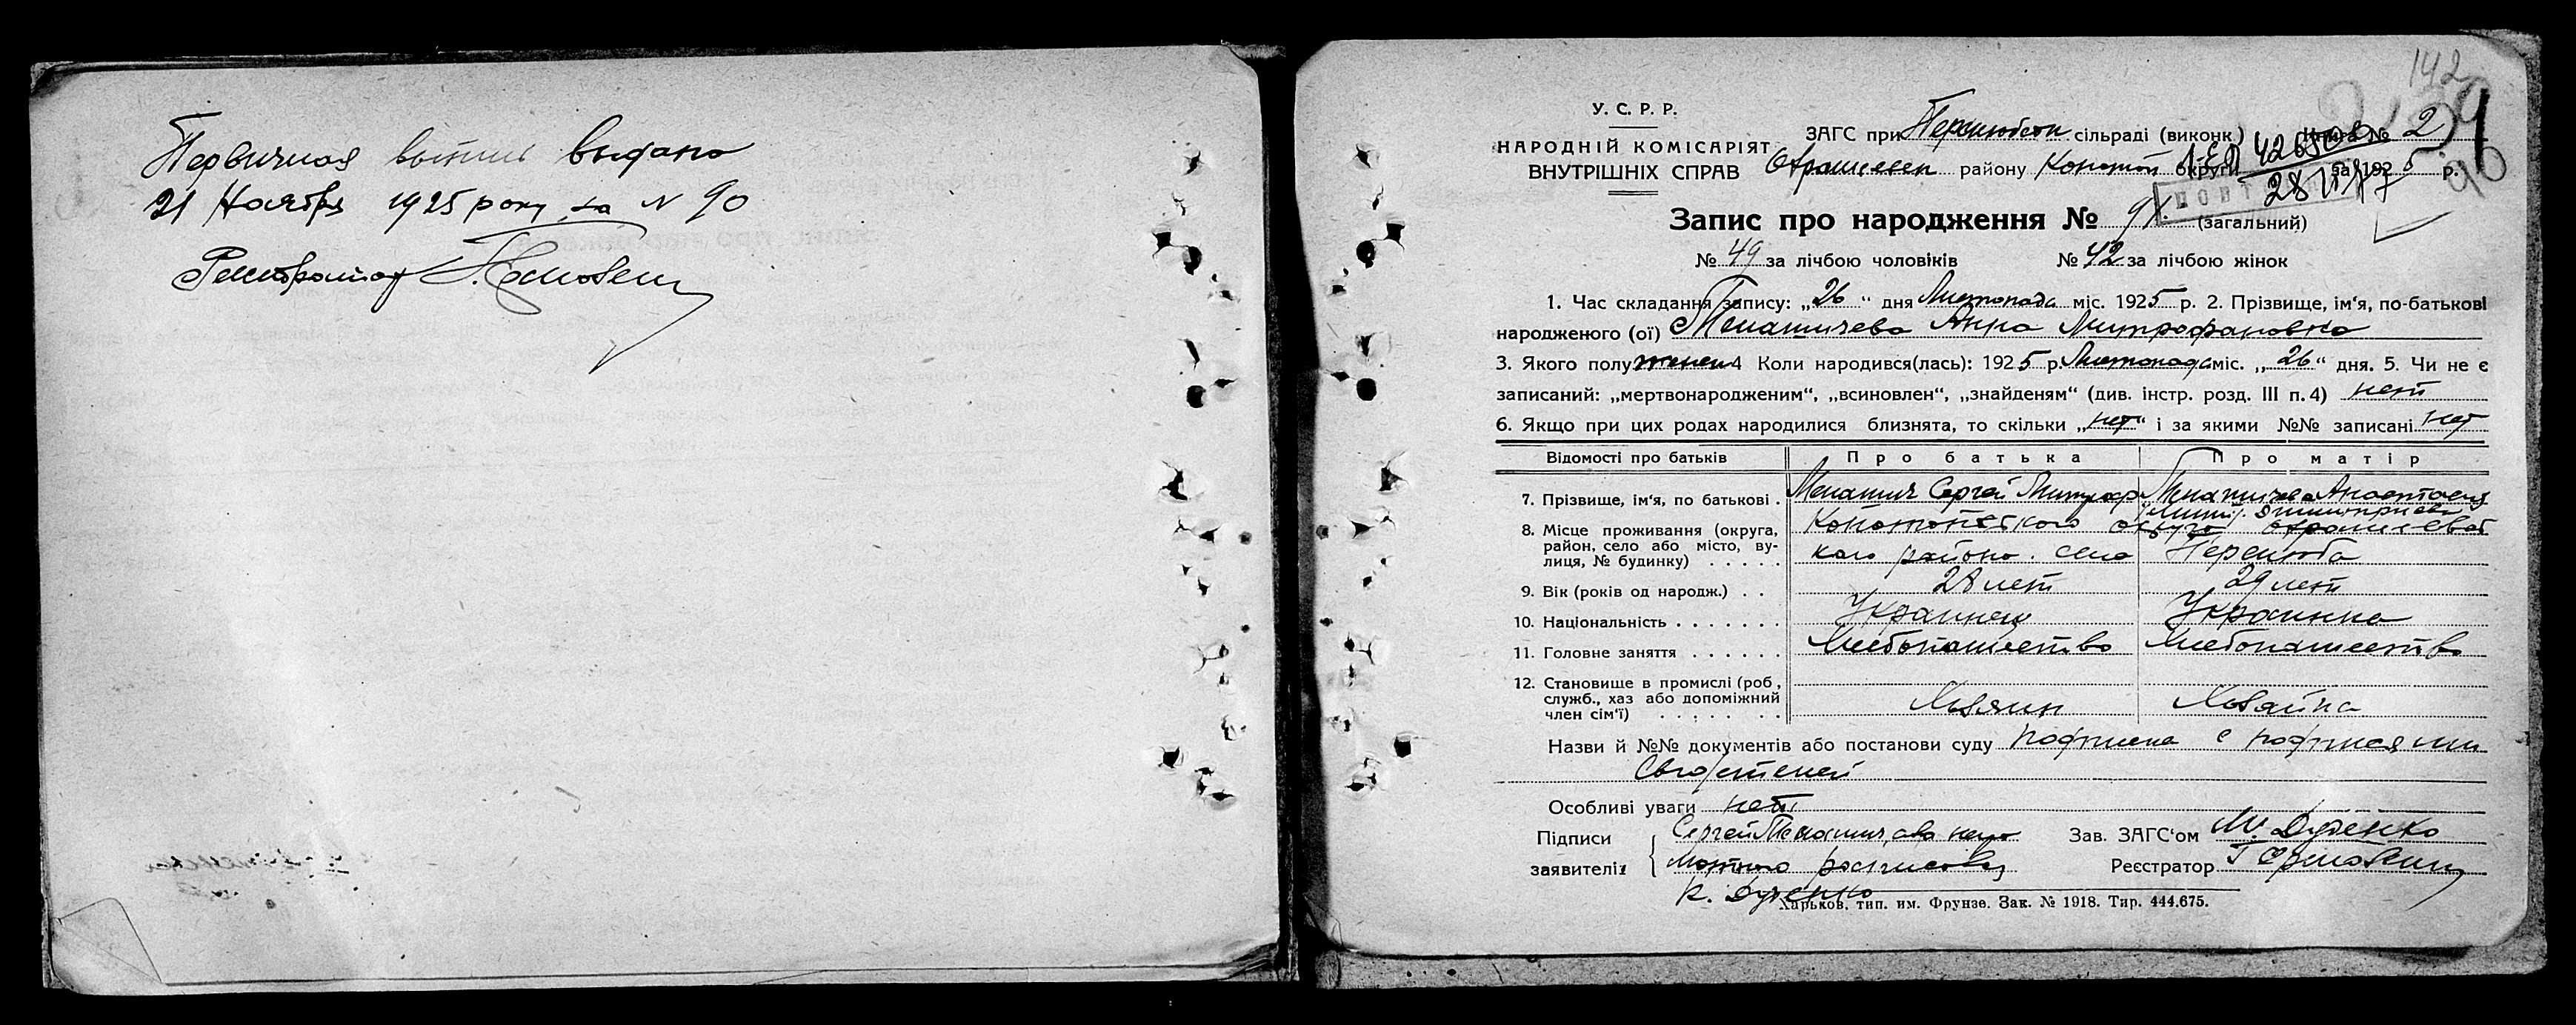 Первичная выпись выдана
21 Ноября 1925 року за N 90
Регистратор Г. Ермовец
142
У. С. Р. Р.
НАРОДНІЙ КОМІСАРІЯТ
ВНУТРІШНІХ СПРАВ
ЗАГС при Перелюбском сільраді (виконк.) Книга № 2
района Конотоп округи за 1925 р.
28 VII 77
90
Запис про народження № 91 (загальний)
№ 49 за лічбою чоловіків № 42 за лічбою жінок
1. Час складання запису: „26“ дня Листопада міс. 1925 р. 2. Прізвище, ім‘я, по-батькові
народженого (ої) Анна Митрофановна
3. Якого полу женск 4 Коли народився(лась): 1925 р. Листопада міс. „26“ дня. 5. Чи не є
записаний: „мертвонародженим“, „всиновлен“, „знайденям“ (див. інстр. розд. III п. 4) нет
6. Якщо при цих родах народилися близнята, то скільки „нет“ і за якими №№ записані нет
Відомості про батьків Про батька Про матір
7. Прізвище, ім‘я, по батькові . Сергей Митроф Анастасия
8. Місце проживання (округа, район, село або місто, вулиця, № будинку) . . . . . Конотопского округа
кого района. село Перелюба
9. Вік (років од народж.) . . 28 лет 29 лет
10. Національність . . . . . . . Украинец Украинка
11. Головне заняття . . . . . . Хлебопашество Хлебопашество
12. Становище в промислі (роб., служб., хаз або допоміжний член сім‘ї) . . . . . . . Хозяин Хозяйка
Назви й №№ документів або постанови суду подписка с подписями
свидетелей
Особливі уваги нет
Підписи Сергей Зав. ЗАГС‘ом М. Дуденко
заявителів Реєстратор Г Ермовец
К. Дуденко
Харьков, тип. им. Фрунзе. Зак. № 1918. Тир. 444.675.